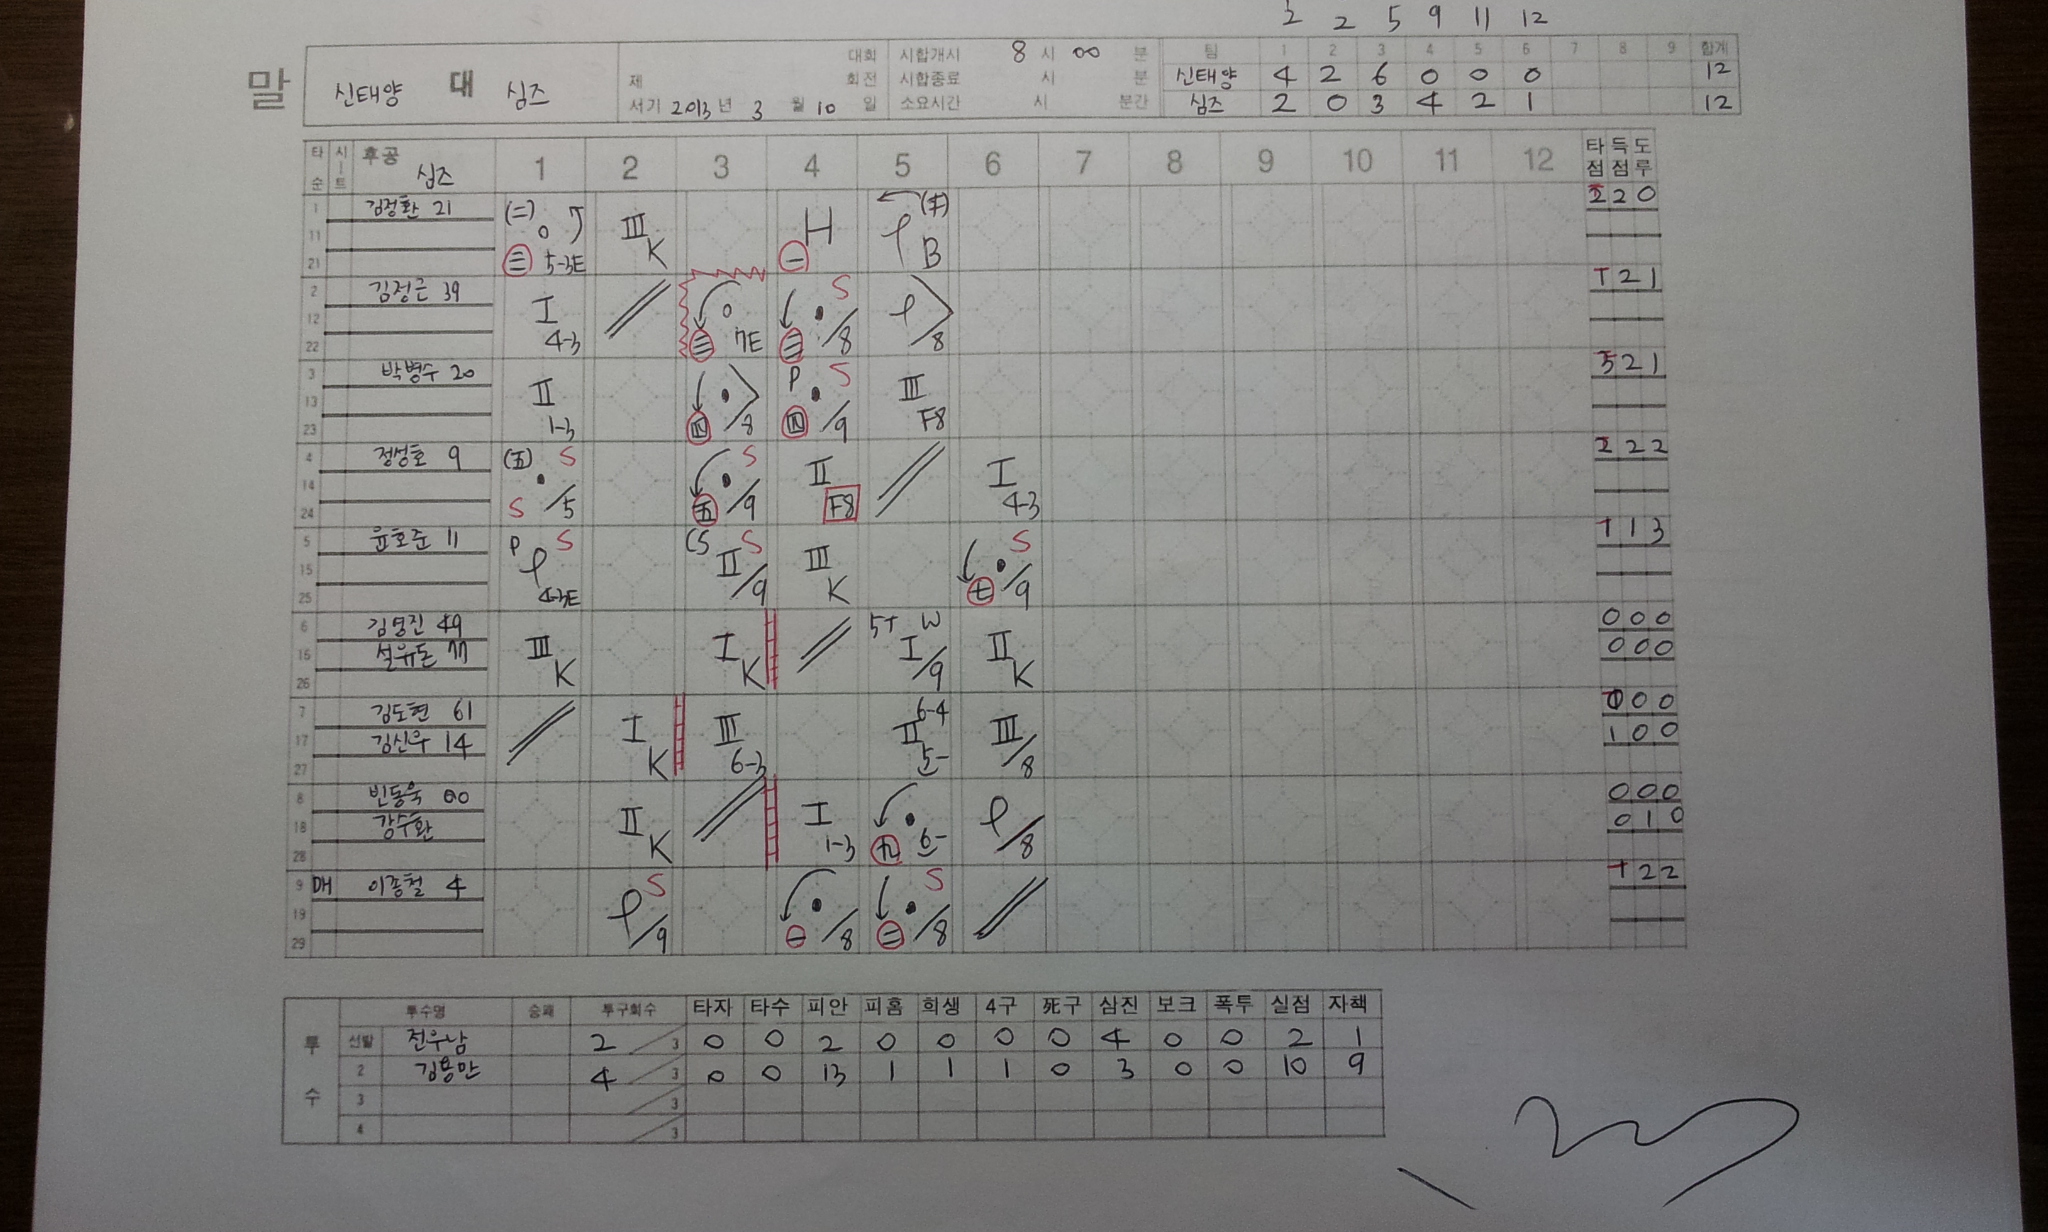 2 2 5 9 11 12
말 신태양 대 심즈
대회 시합개시 8 시 00 분
제 회전 시합종료 시 분
서기 2013 년 3 월 10 일 소요시간 시 분간
팀 1 2 3 4 5 6 7 8 9 합계
신태양 4 2 6 0 0 0 12
심즈 2 0 3 4 2 1 12
타순 시트 후공 심즈 1 2 3 4 5 6 7 8 9 10 11 12 타점 득점 도루
1 김정환 21 (二) 三 5-3E III K H 一 B 2 2 0
11
21
2 김정근 39 I 4-3 三 7E S 三 /8 /8 1 2 1
12
22
3 박병수 20 II 1-3 四 /8 P S 四 /9 III F8 5 2 1
13
23
4 정성호 9 (五) S S /5 S 五 /9 II F8 I 4-3 2 2 2
14
24
5 윤호준 11 P S 4-3E CS II S /9 III K S 七 /9 1 1 3
15
25
6 김명진 49 III K I K 5T W I /9 II K 0 0 0
16 0 0 0
26
7 김도현 61 I K III 6-3 6-4 II 5- III /8 0 0 0
17 김신우 14 1 0 0
27
8 빈동욱 00 II K I 1-3 九 6- /8 0 0 0
18 강수환 0 1 0
28
9 DH 이종철 4 S /9 一 /8 S 二 /8 1 2 2
19
29
투수 투수명 승패 투구회수 타자 타수 피안 피홈 희생 4구 死구 삼진 보크 폭투 실점 자책
선발 전우남 2 /3 0 0 2 0 0 0 0 4 0 0 2 1
2 김용만 4 /3 0 0 13 1 1 1 0 3 0 0 10 9
3 /3
4 /3